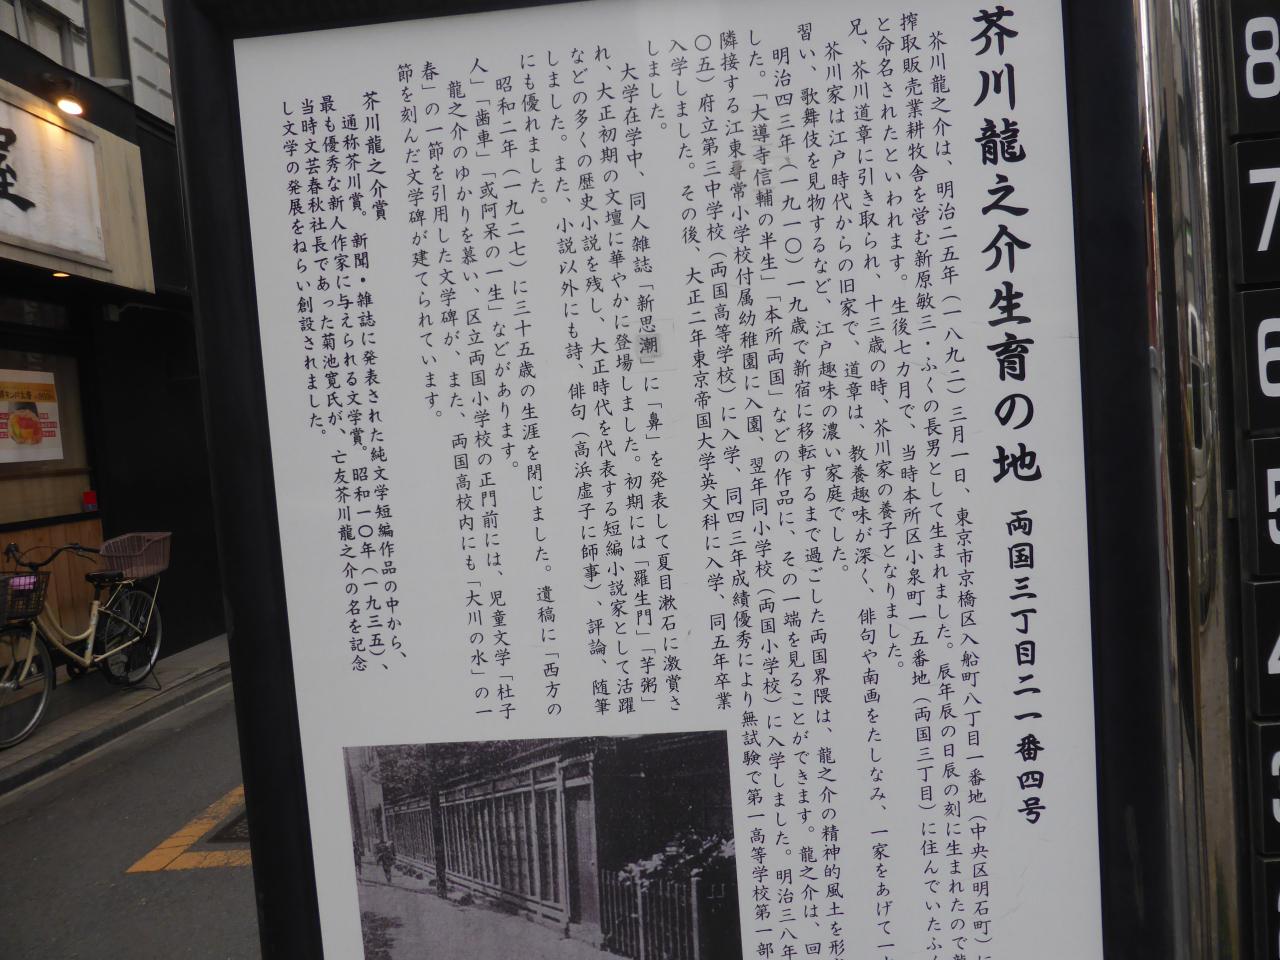 芥川龍之介生育の地 両国三丁目二一番四号
芥川龍之介は、明治二五年（一八九二）三月一日、東京市京橋区入船町八丁目一番地（中央区明石町）に
搾取販売業耕牧舎を営む新原敏三・ふくの長男として生まれました。辰年辰の日辰の刻に生まれたので龍
と命名されたといわれます。生後七カ月で、当時本所区小泉町一五番地（両国三丁目）に住んでいたふく
兄、芥川道章に引き取られ、十三歳の時、芥川家の養子となりました。
芥川家は江戸時代からの旧家で、道章は、教養趣味が深く、俳句や南画をたしなみ、一家をあげて一
習い、歌舞伎を見物するなど、江戸趣味の濃い家庭でした。
明治四三年（一九一〇）一九歳で新宿に移転するまで過ごした両国界隈は、龍之介の精神的風土を形
した。「大導寺信輔の半生」「本所両国」などの作品に、その一端を見ることができます。龍之介は、回
隣接する江東尋常小学校付属幼稚園に入園、翌年同小学校（両国小学校）に入学しました。明治三八年
〇五）府立第三中学校（両国高等学校）に入学、同四三年成績優秀により無試験で第一高等学校第一部
入学しました。その後、大正二年東京帝国大学英文科に入学、同五年卒業
しました。
大学在学中、同人雑誌「新思潮」に「鼻」を発表して夏目漱石に激賞さ
れ、大正初期の文壇に華やかに登場しました。初期には「羅生門」「芋粥」
などの多くの歴史小説を残し、大正時代を代表する短編小説家として活躍
しました。また、小説以外にも詩、俳句（高浜虚子に師事）、評論、随筆
にも優れました。
昭和二年（一九二七）に三十五歳の生涯を閉じました。遺稿に「西方の
人」「歯車」「或阿呆の一生」などがあります。
龍之介のゆかりを慕い、区立両国小学校の正門前には、児童文学「杜子
春」の一節を引用した文学碑が、また、両国高校内にも「大川の水」の一
節を刻んだ文学碑が建てられています。
芥川龍之介賞
通称芥川賞。新聞・雑誌に発表された純文学短編作品の中から、
最も優秀な新人作家に与えられる文学賞。昭和一〇年（一九三五）、
当時文芸春秋社長であった菊池寛氏が、亡友芥川龍之介の名を記念
し文学の発展をねらい創設されました。
屋
8
7
6
5
4
3